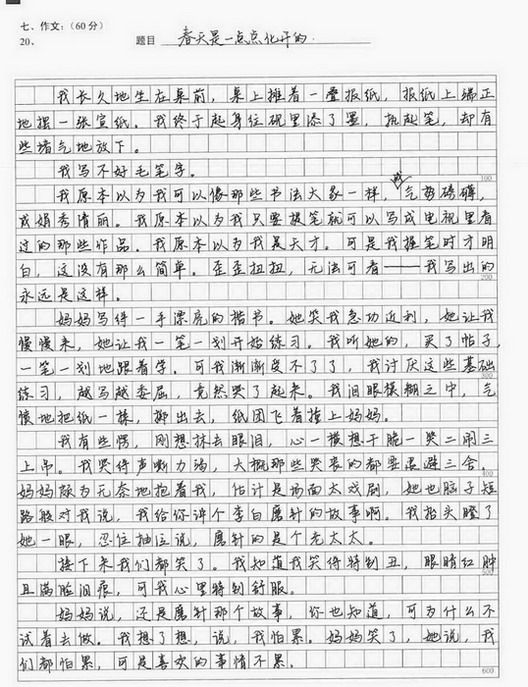 七、作文:(60分)
20、 题目 春天是一点点化开的.
我长久地坐在桌前,桌上摊着一叠报纸,报纸上端正
地摆一张宣纸。我终于起身往砚里添了墨,执起笔,却有
些堵气地放下。
我写不好毛笔字。
100
我原本以为我可以像那些书法大家一样,或气势磅礴,
或娟秀清丽。我原本以为我只要提笔就可以写成电视里看
过的那些作品。我原本以为我是天才。可是我提笔时才明
白,这没有那么简单。歪歪扭扭,无法可看——我写出的
200
永远是这样。
妈妈写得一手漂亮的楷书。她笑我急功近利,她让我
慢慢来,她让我一笔一划开始练习。我听她的,买了帖子,
一笔一划地跟着学。可我渐渐受不了了,我讨厌这些基础
300
练习,越写越委屈,竟然哭了起来。我泪眼模糊之中,气
愤地把纸一揉,掷出去,纸团飞着撞上妈妈。
我有些愣,刚想抹去眼泪,心一横想干脆一哭二闹三
上吊。我哭得声嘶力竭,大概那些哭丧的都要退避三舍。
400
妈妈颇为无奈地抱着我,估计是场面太戏剧,她也脑子短
路般对我说,我给你讲个李白磨针的故事啊。我抬头瞪了
她一眼,忍住抽泣说,磨针的是个老太太。
接下来我们都笑了。我知道我笑得特别丑,眼睛红肿
500
且满脸泪痕,可我心里特别舒服。
妈妈说,还是磨针那个故事,你也知道,可为什么不
试着去做。我想了想,说,我怕累。妈妈笑了,她说,我
们都怕累,可是喜欢的事情不累。
600